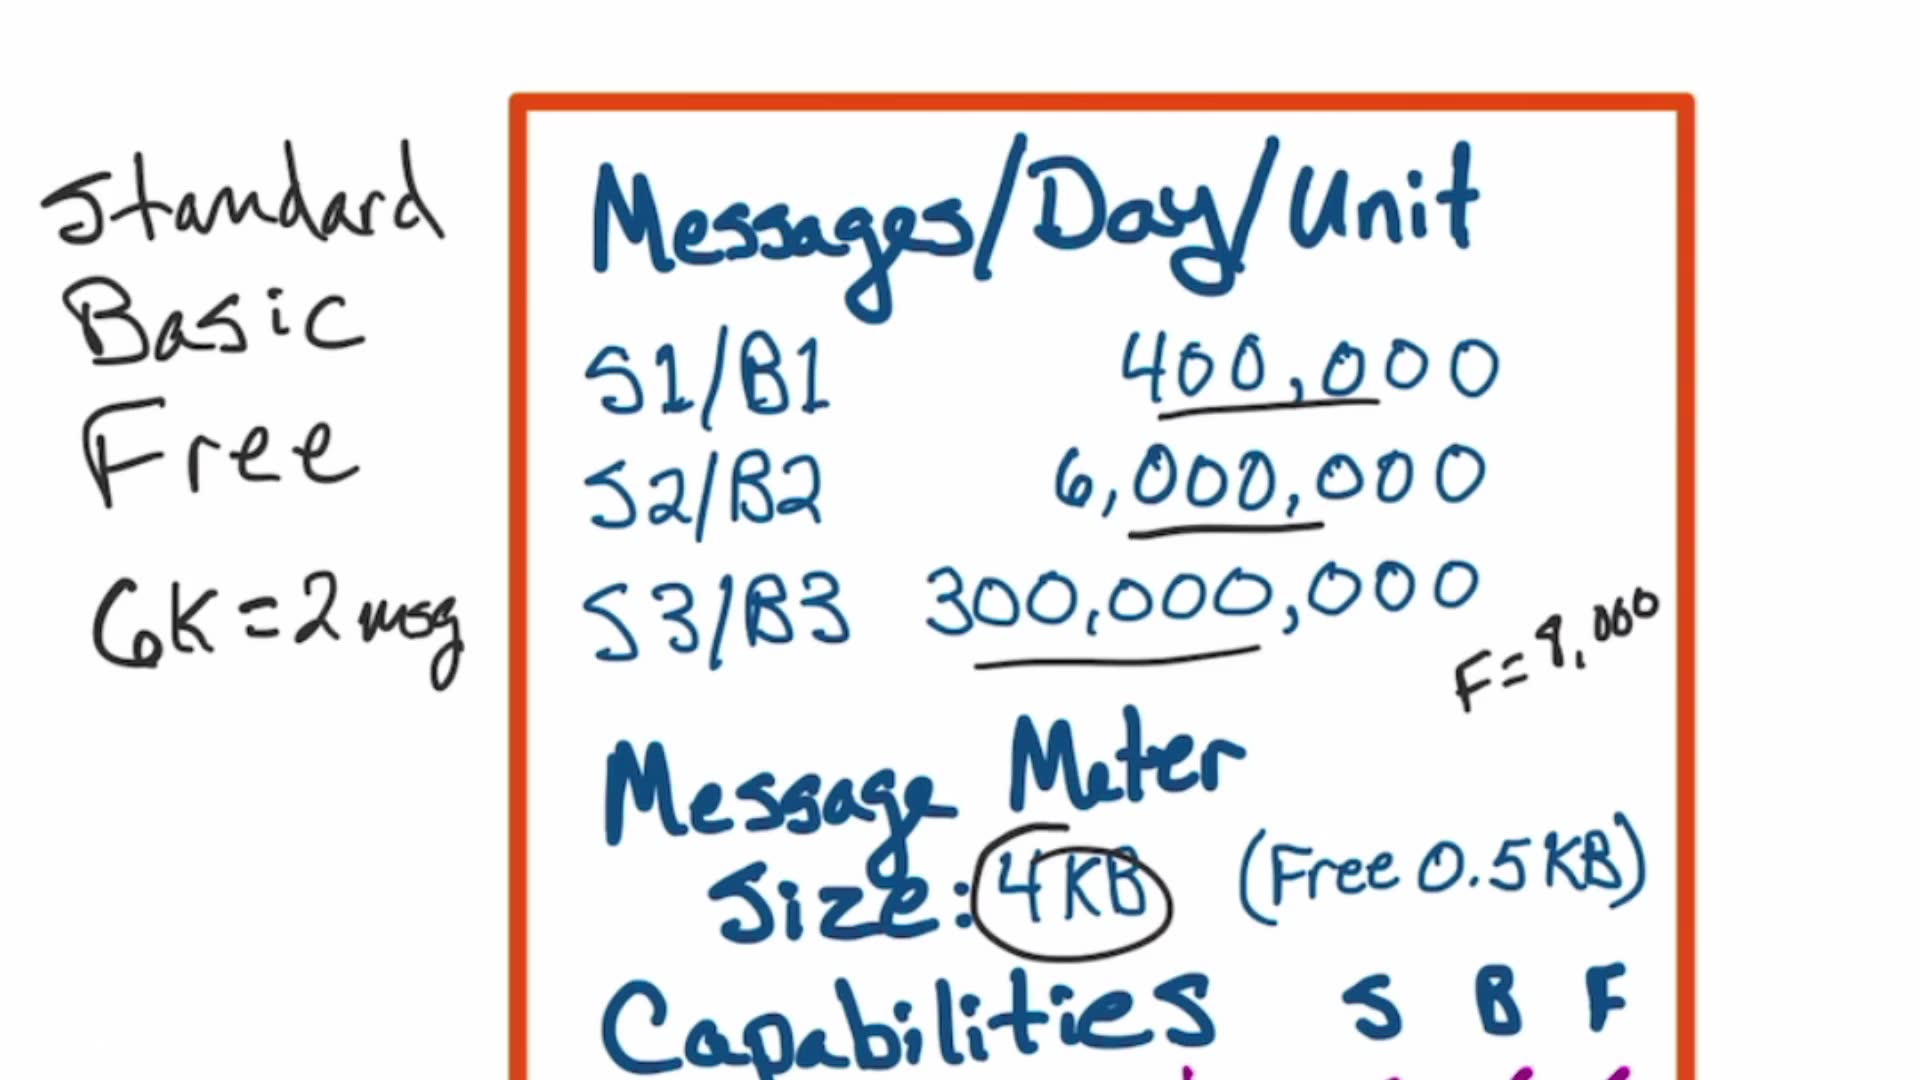 Standard
Basic
Free
6K = 2 msg
Messages/Day/Unit
S1/B1 400,000
S2/B2 6,000,000
S3/B3 300,000,000
F = 8,000
Message Meter
Size: 4KB (Free 0.5KB)
Capabilities S B F